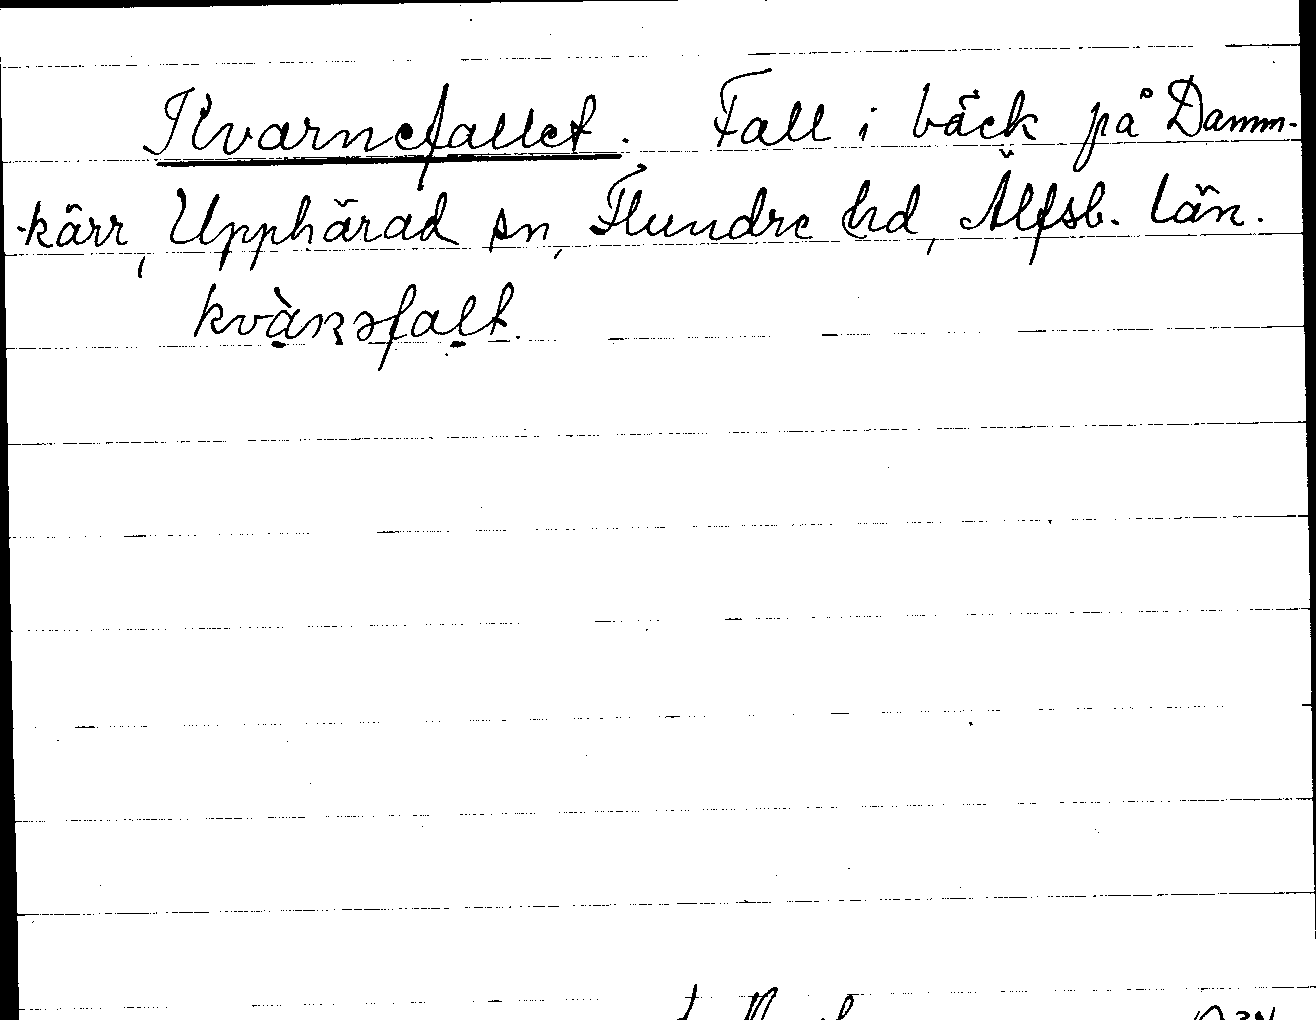 Kvarnefallet. Fall i bäck på Damm-
kärr, Upphärad sn, Flundre hd, Älfsb. län.